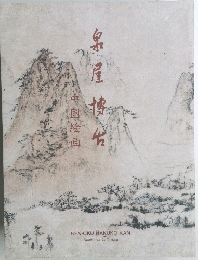 泉屋博古
中国絵画
SEN-OKU HAKUKO KAN